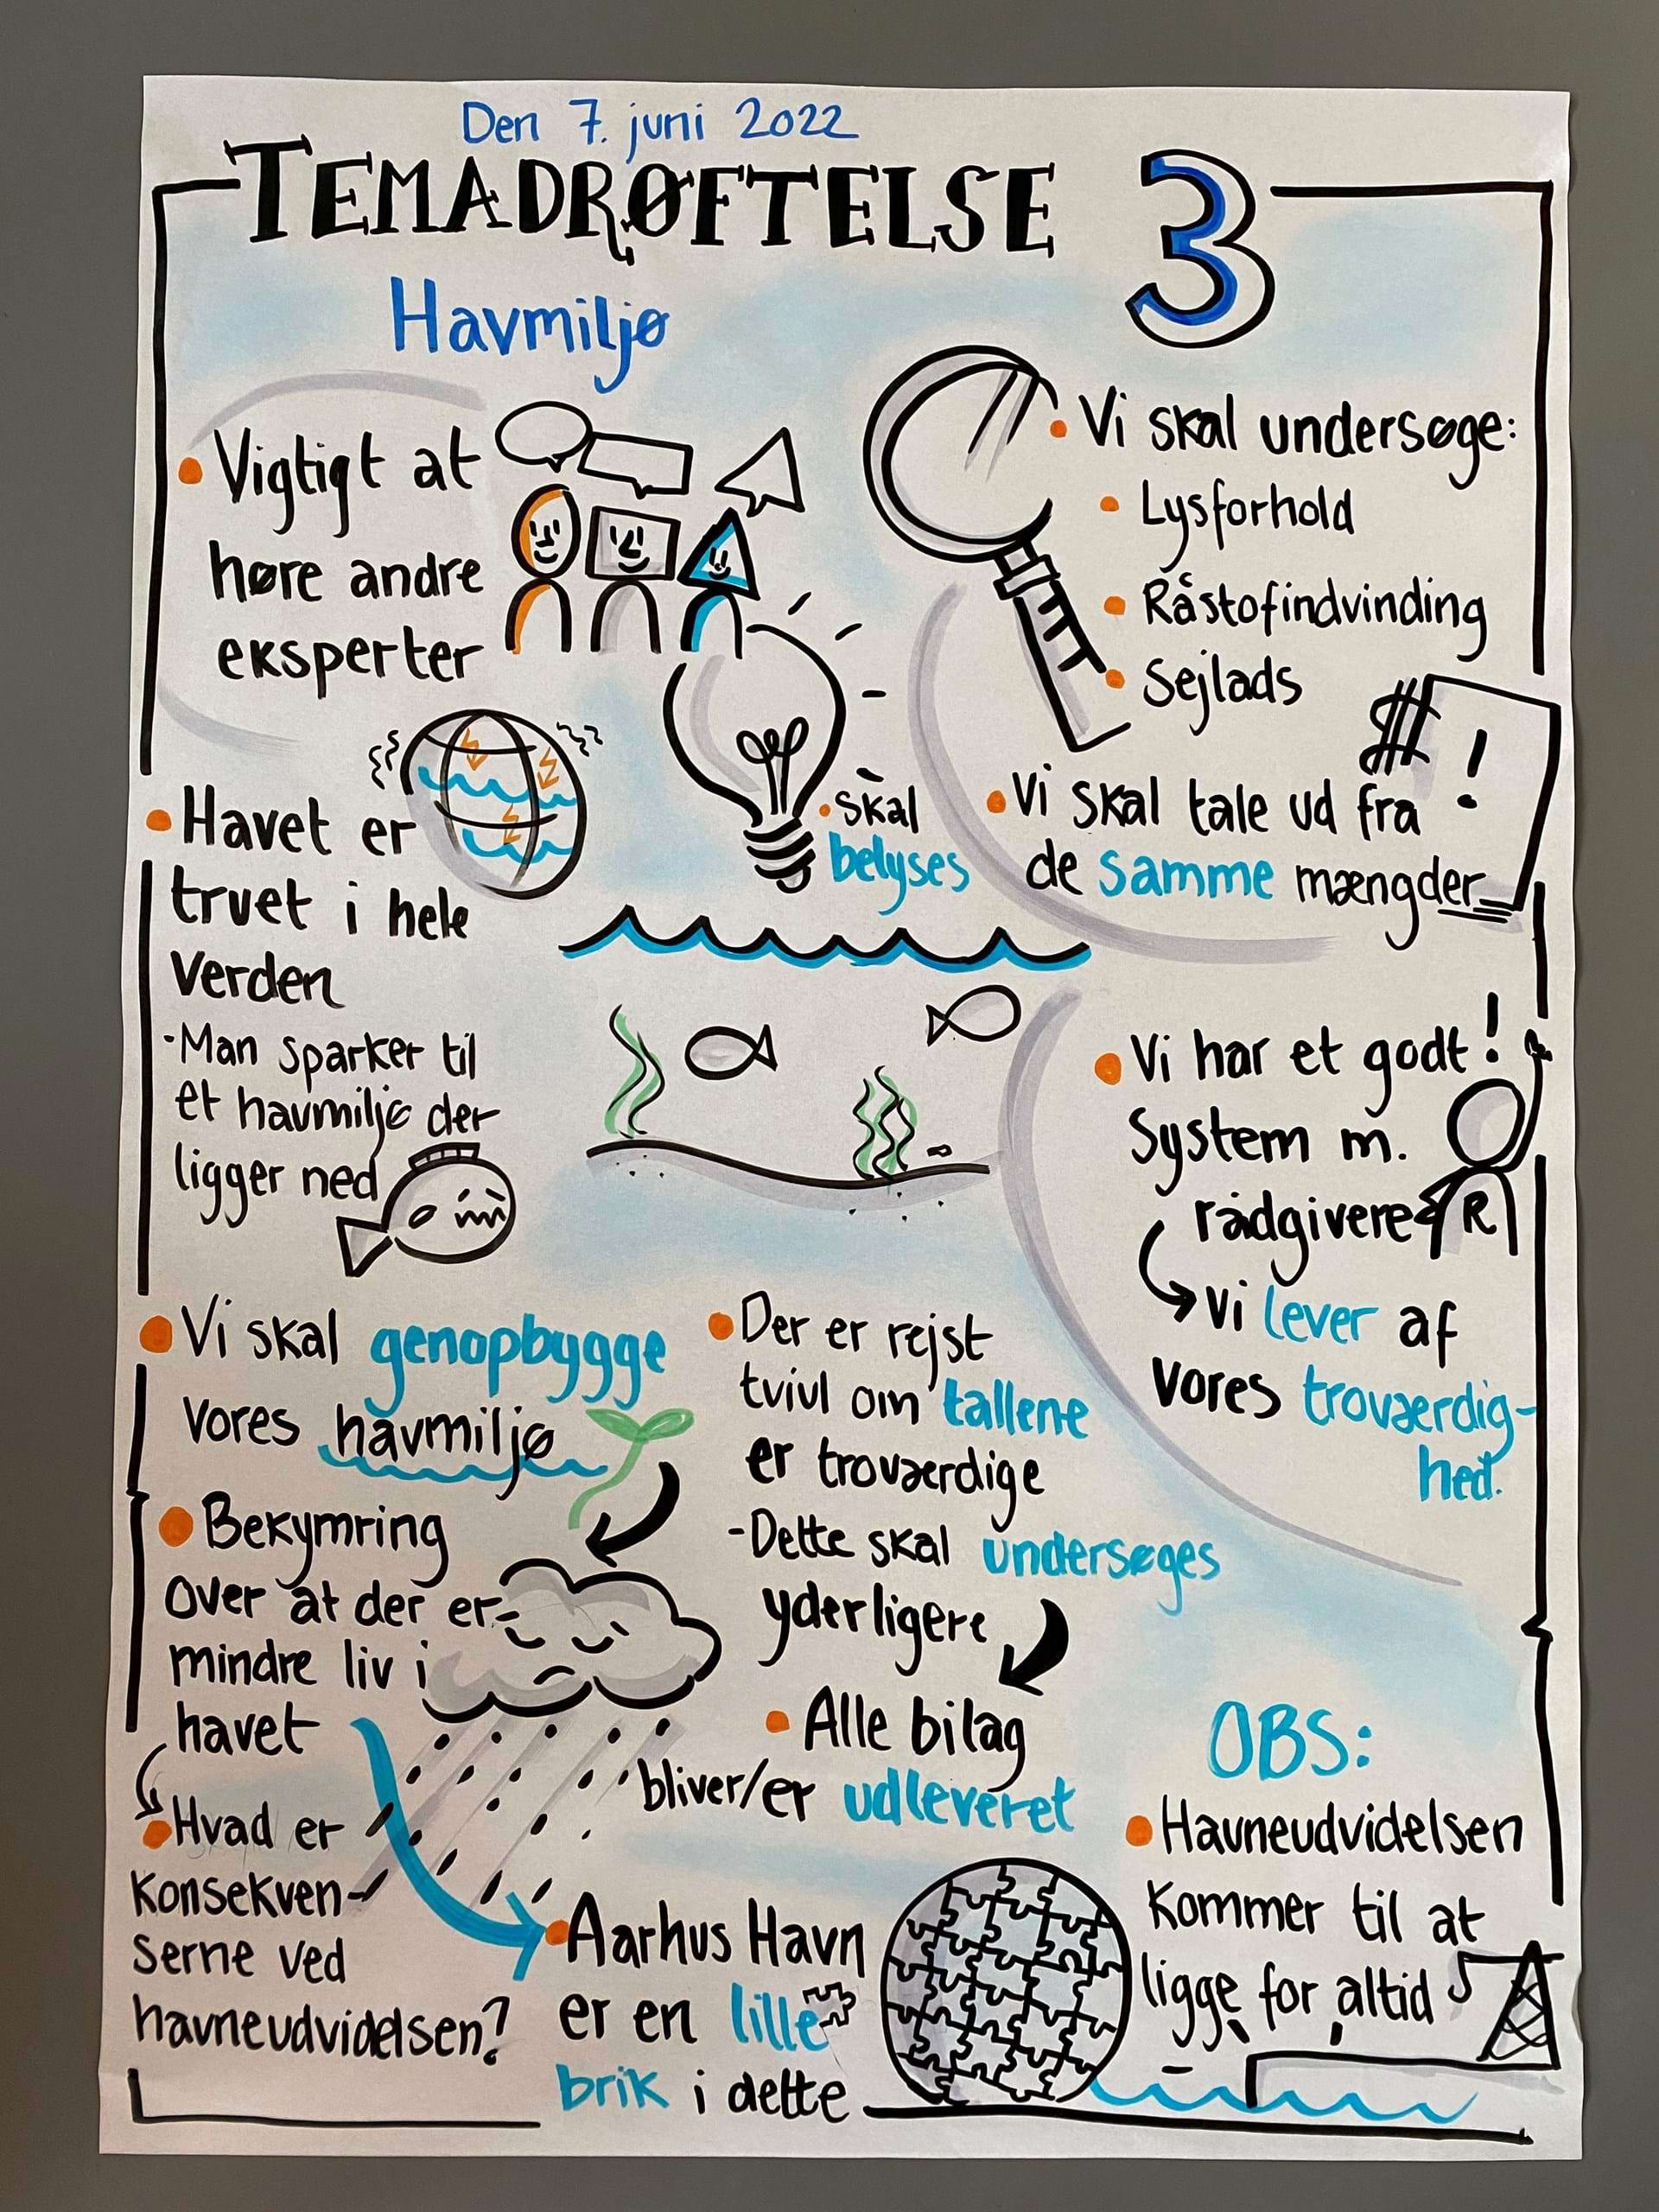 Den 7. juni 2022
TEMADRØFTELSE 3
Havmiljø
Vigtigt at
høre andre
eksperter
Vi skal undersøge:
Lysforhold
Råstofindvinding
Sejlads
Havet er
truet i hele
verden
-Man sparker til
et havmiljø der
ligger ned
skal
belyses
Vi skal tale ud fra
de samme mængder
!
Vi har et godt !
system m.
rådgivere
R
Vi lever af
vores troværdig-
hed.
Vi skal genopbygge
vores havmiljø
Der er rejst
tvivl om tallene
er troværdige
-Dette skal undersøges
yderligere
Alle bilag
bliver/er udleveret
Bekymring
over at der er
mindre liv i
havet
Hvad er
konsekven-
serne ved
havneudvidelsen?
Aarhus Havn
er en lille
brik i dette
OBS:
Havneudvidelsen
kommer til at
ligge for altid